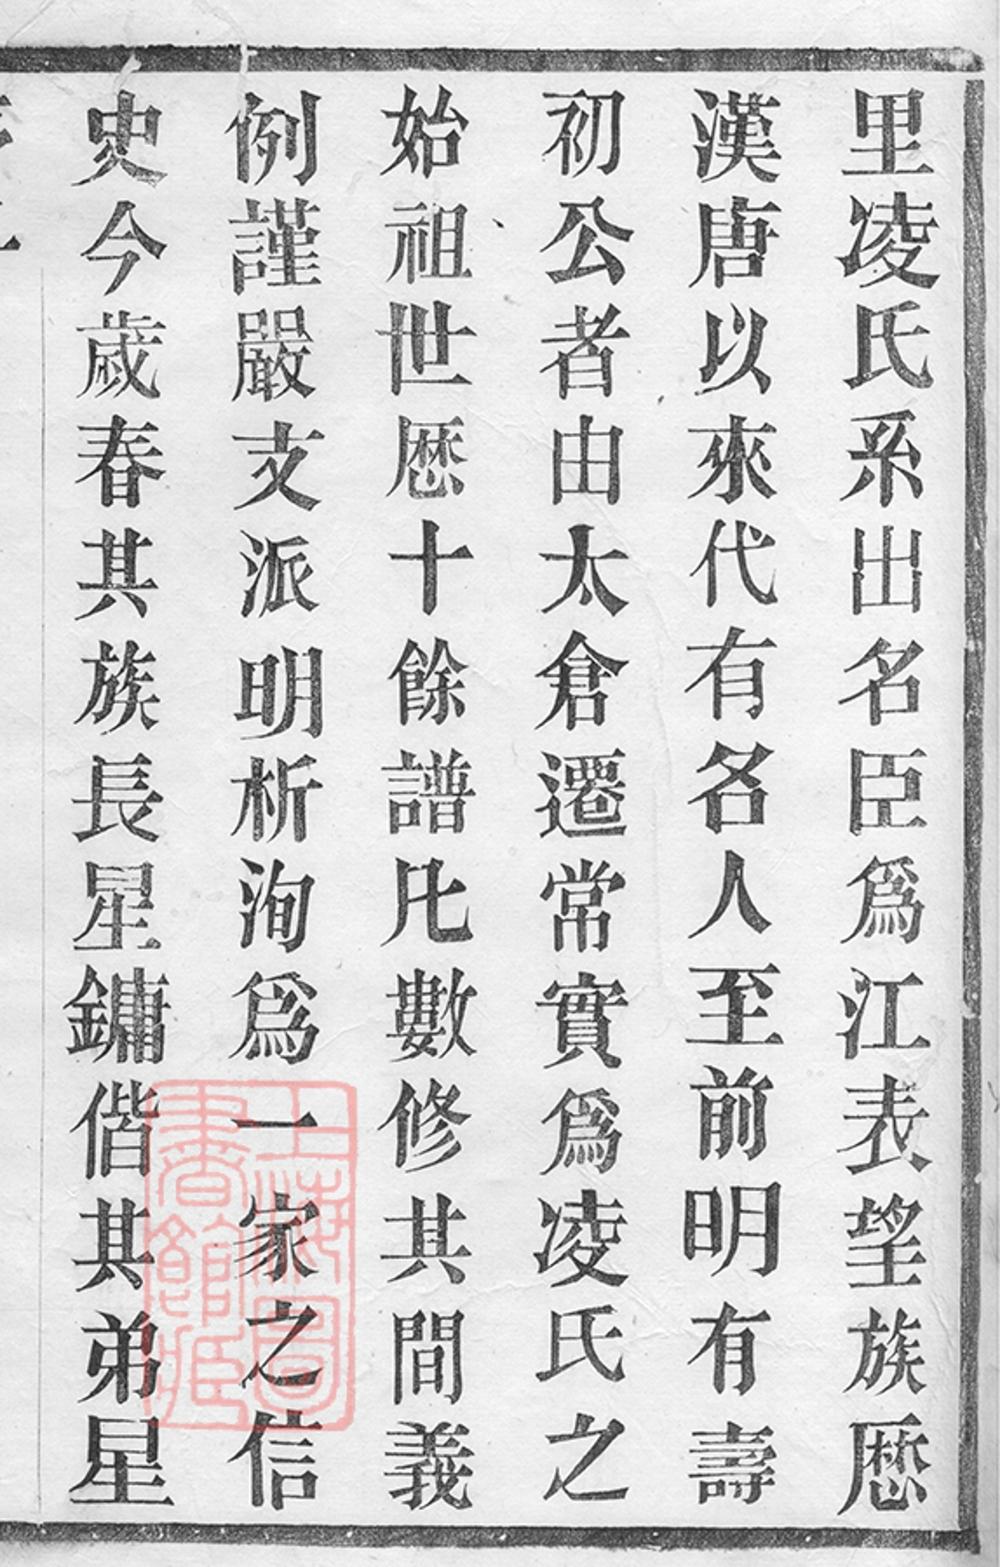 里凌氏系出名臣爲江表望族厯
漢唐以來代有名人至前明有壽
初公者由太倉遷常實爲凌氏之
始祖世厯十餘譜凡數修其間義
例謹嚴支派明析洵爲一家之信
史今歲春其族長星鏞偕其弟星
上海圖書館藏